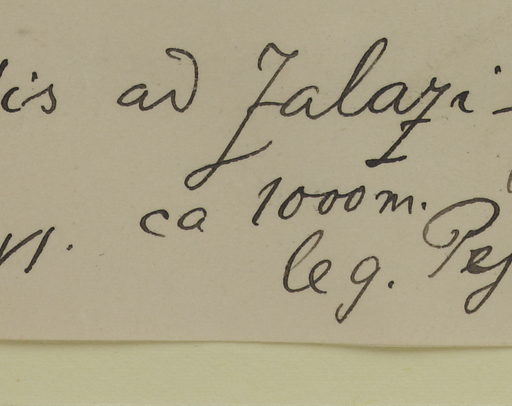 is ad Zalazi-
VI. ca 1000 m.
leg. Pej